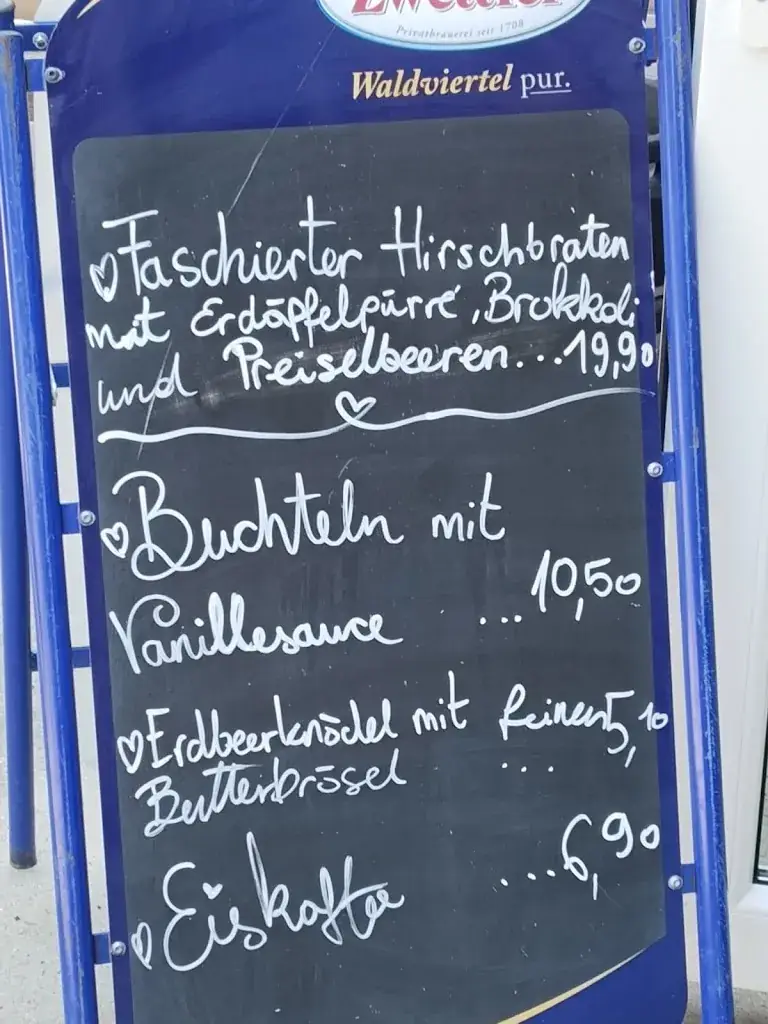 Zwettler
Privatbrauerei seit 1708
Waldviertel pur.
Faschierter Hirschbraten
mit Erdäpfelpürré, Brokkoli
und Preiselbeeren...19,90
Buchteln mit
Vanillesauce ...10,50
Erdbeerknödel mit feinen 5,10
Butterbrösel ...
Eiskaffee ...6,90